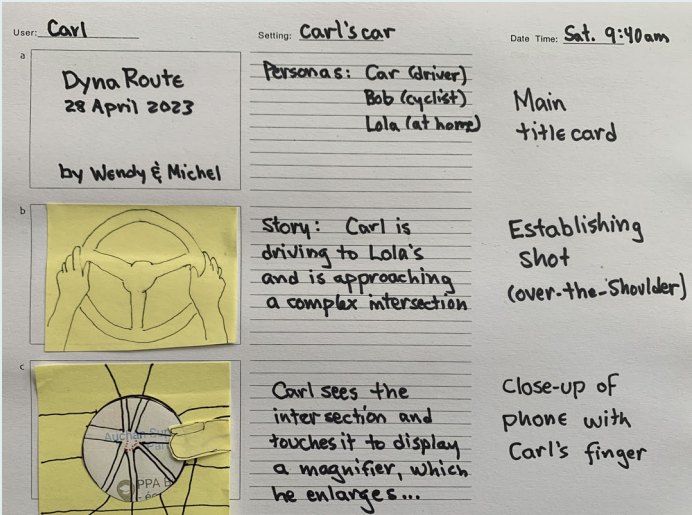 User: Carl
Setting: Carl's car
Date Time: Sat. 9:40am
a
Dyna Route
28 April 2023
by Wendy & Michel
Personas: Car (driver)
Bob (cyclist)
Lola (at home)
Main
title card
b
Story: Carl is
driving to Lola's
and is approaching
a complex intersection
Establishing
shot
(over-the-Shoulder)
c
Auchan
PPA
Carl sees the
intersection and
touches it to display
a magnifier, which
he enlarges...
Close-up of
phone with
Carl's finger